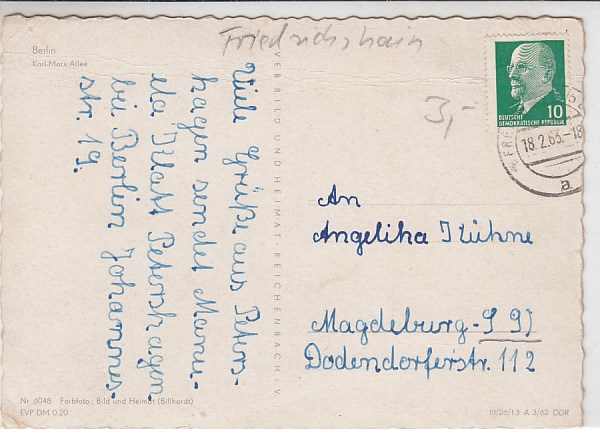 Berlin
Karl-Marx-Allee
Friedrichshain
3,-
Viele Grüße aus Peters-
hagen sendet Manu-
ela Klatt Petershagen
bei Berlin Johannes-
str. 19.
VEB BILD UND HEIMAT REICHENBACH i. V
10
DEUTSCHE
DEMOKRATISCHE REPUBLIK
18.2.63.-18
a
An
Angelika Kühne
Magdeburg-S 97
Dodendorferstr. 112
Nr. 6048 Farbfoto: Bild und Heimat (Billhardt)
EVP DM 0.20
III/26/13 A 3/62 DDR